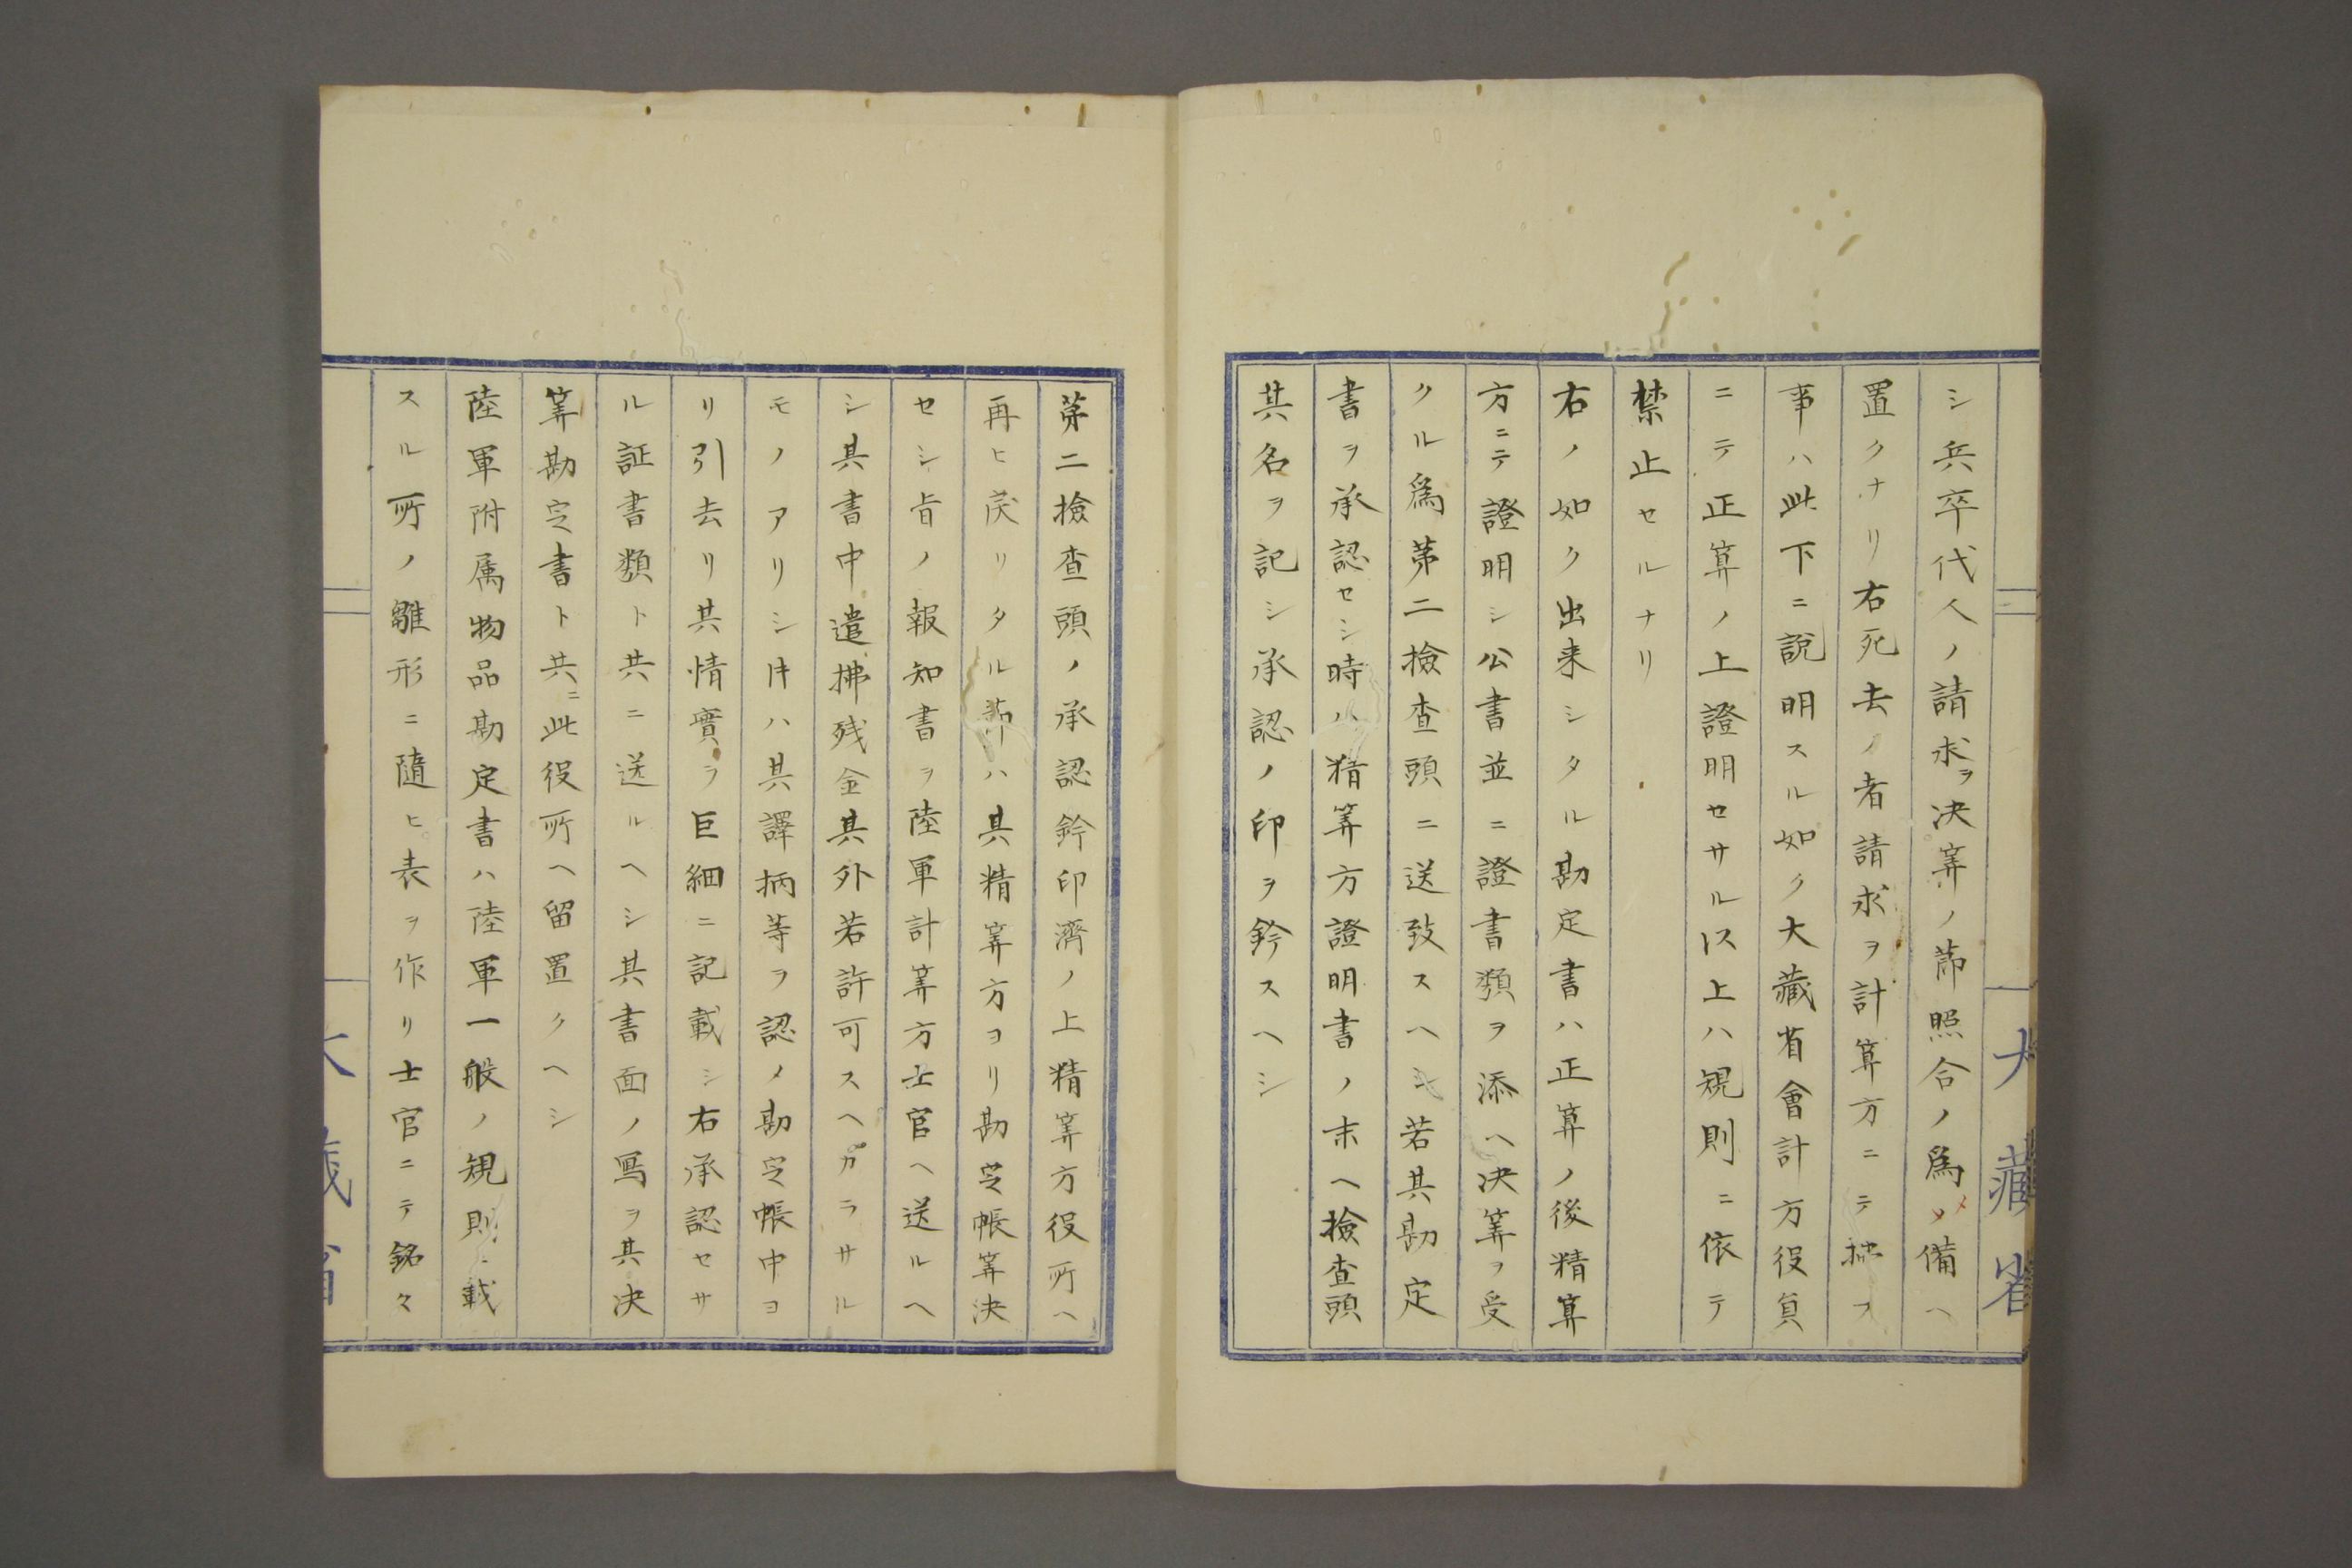 大藏省
シ兵卒代人ノ請求ヲ決筭ノ節照合ノ爲メ備ヘ
置クナリ右死去ノ者請求ヲ計算方ニテ拂フ
事ハ此下ニ說明スル如ク大藏省會計方役負
ニテ正算ノ上證明セサル以上ハ規則ニ依テ
禁止セルナリ
右ノ如ク出来シタル勘定書ハ正算ノ後精算
方ニテ證明シ公書並ニ證書類ヲ添ヘ决筭ヲ受
クル爲苐二撿查頭ニ送致スヘシ若其勘定
書ヲ承認セシ時ハ精筭方證明書ノ末ヘ撿查頭
其名ヲ記シ承認ノ印ヲ鈐スヘシ
苐二撿查頭ノ承認鈐印濟ノ上精筭方役所ヘ
再ヒ戻リタル節ハ其精筭方ヨリ勘定帳筭決
セシ旨ノ報知書ヲ陸軍計筭方士官ヘ送ルヘ
シ其書中遣拂残金其外若許可スヘカラサル
モノアリシ𪜈ハ其譯柄等ヲ認メ勘定帳中ヨ
リ引去リ其情實ヲ巨細ニ記載シ右承認セサ
ル証書類ト共ニ送ルヘシ其書面ノ寫ヲ其决
筭勘定書ト共ニ此役所ヘ留置クヘシ
陸軍附属物品勘定書ハ陸軍一般ノ規則ニ載
スル所ノ雛形ニ隨ヒ表ヲ作リ士官ニテ銘々
大藏省